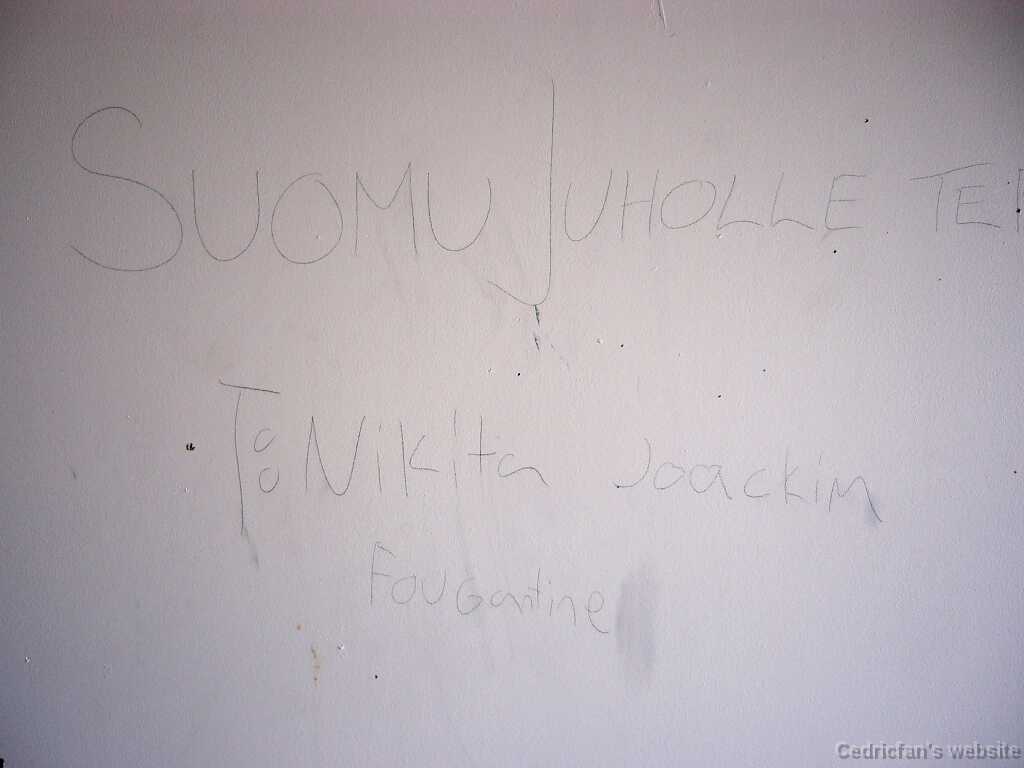 SUOMU JUHOLLE TE
To: Nikita Joackim
Fougantine
Cedricfan's website